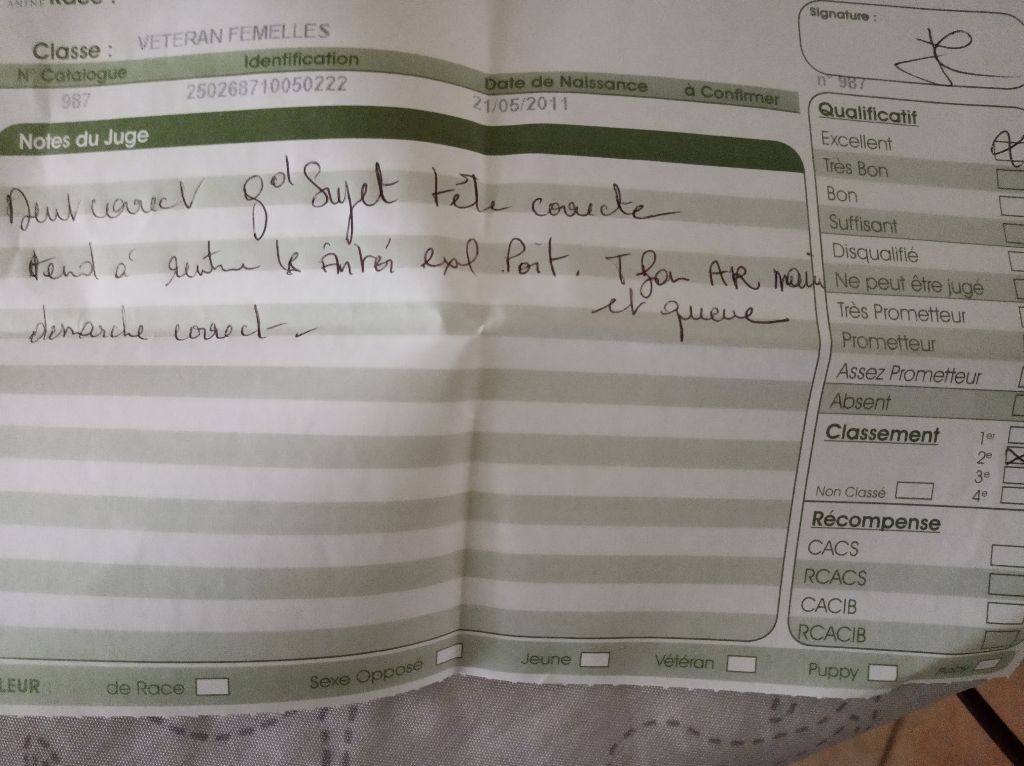 Classe : VETERAN FEMELLES
N° Catalogue Identification Date de Naissance à Confirmer
987 250268710050222 21/05/2011
Notes du Juge
Dent correct gd Sujet tête correcte
tend à rentrer le exl Poit. T bon AR main
et queue
demarche correct
Signature :
n° 987
Qualificatif
Excellent
Très Bon
Bon
Suffisant
Disqualifié
Ne peut être jugé
Très Prometteur
Prometteur
Assez Prometteur
Absent
Classement
1er
2e
3e
Non Classé 4e
Récompense
CACS
RCACS
CACIB
RCACIB
LEUR : de Race Sexe Opposé Jeune Vétéran Puppy